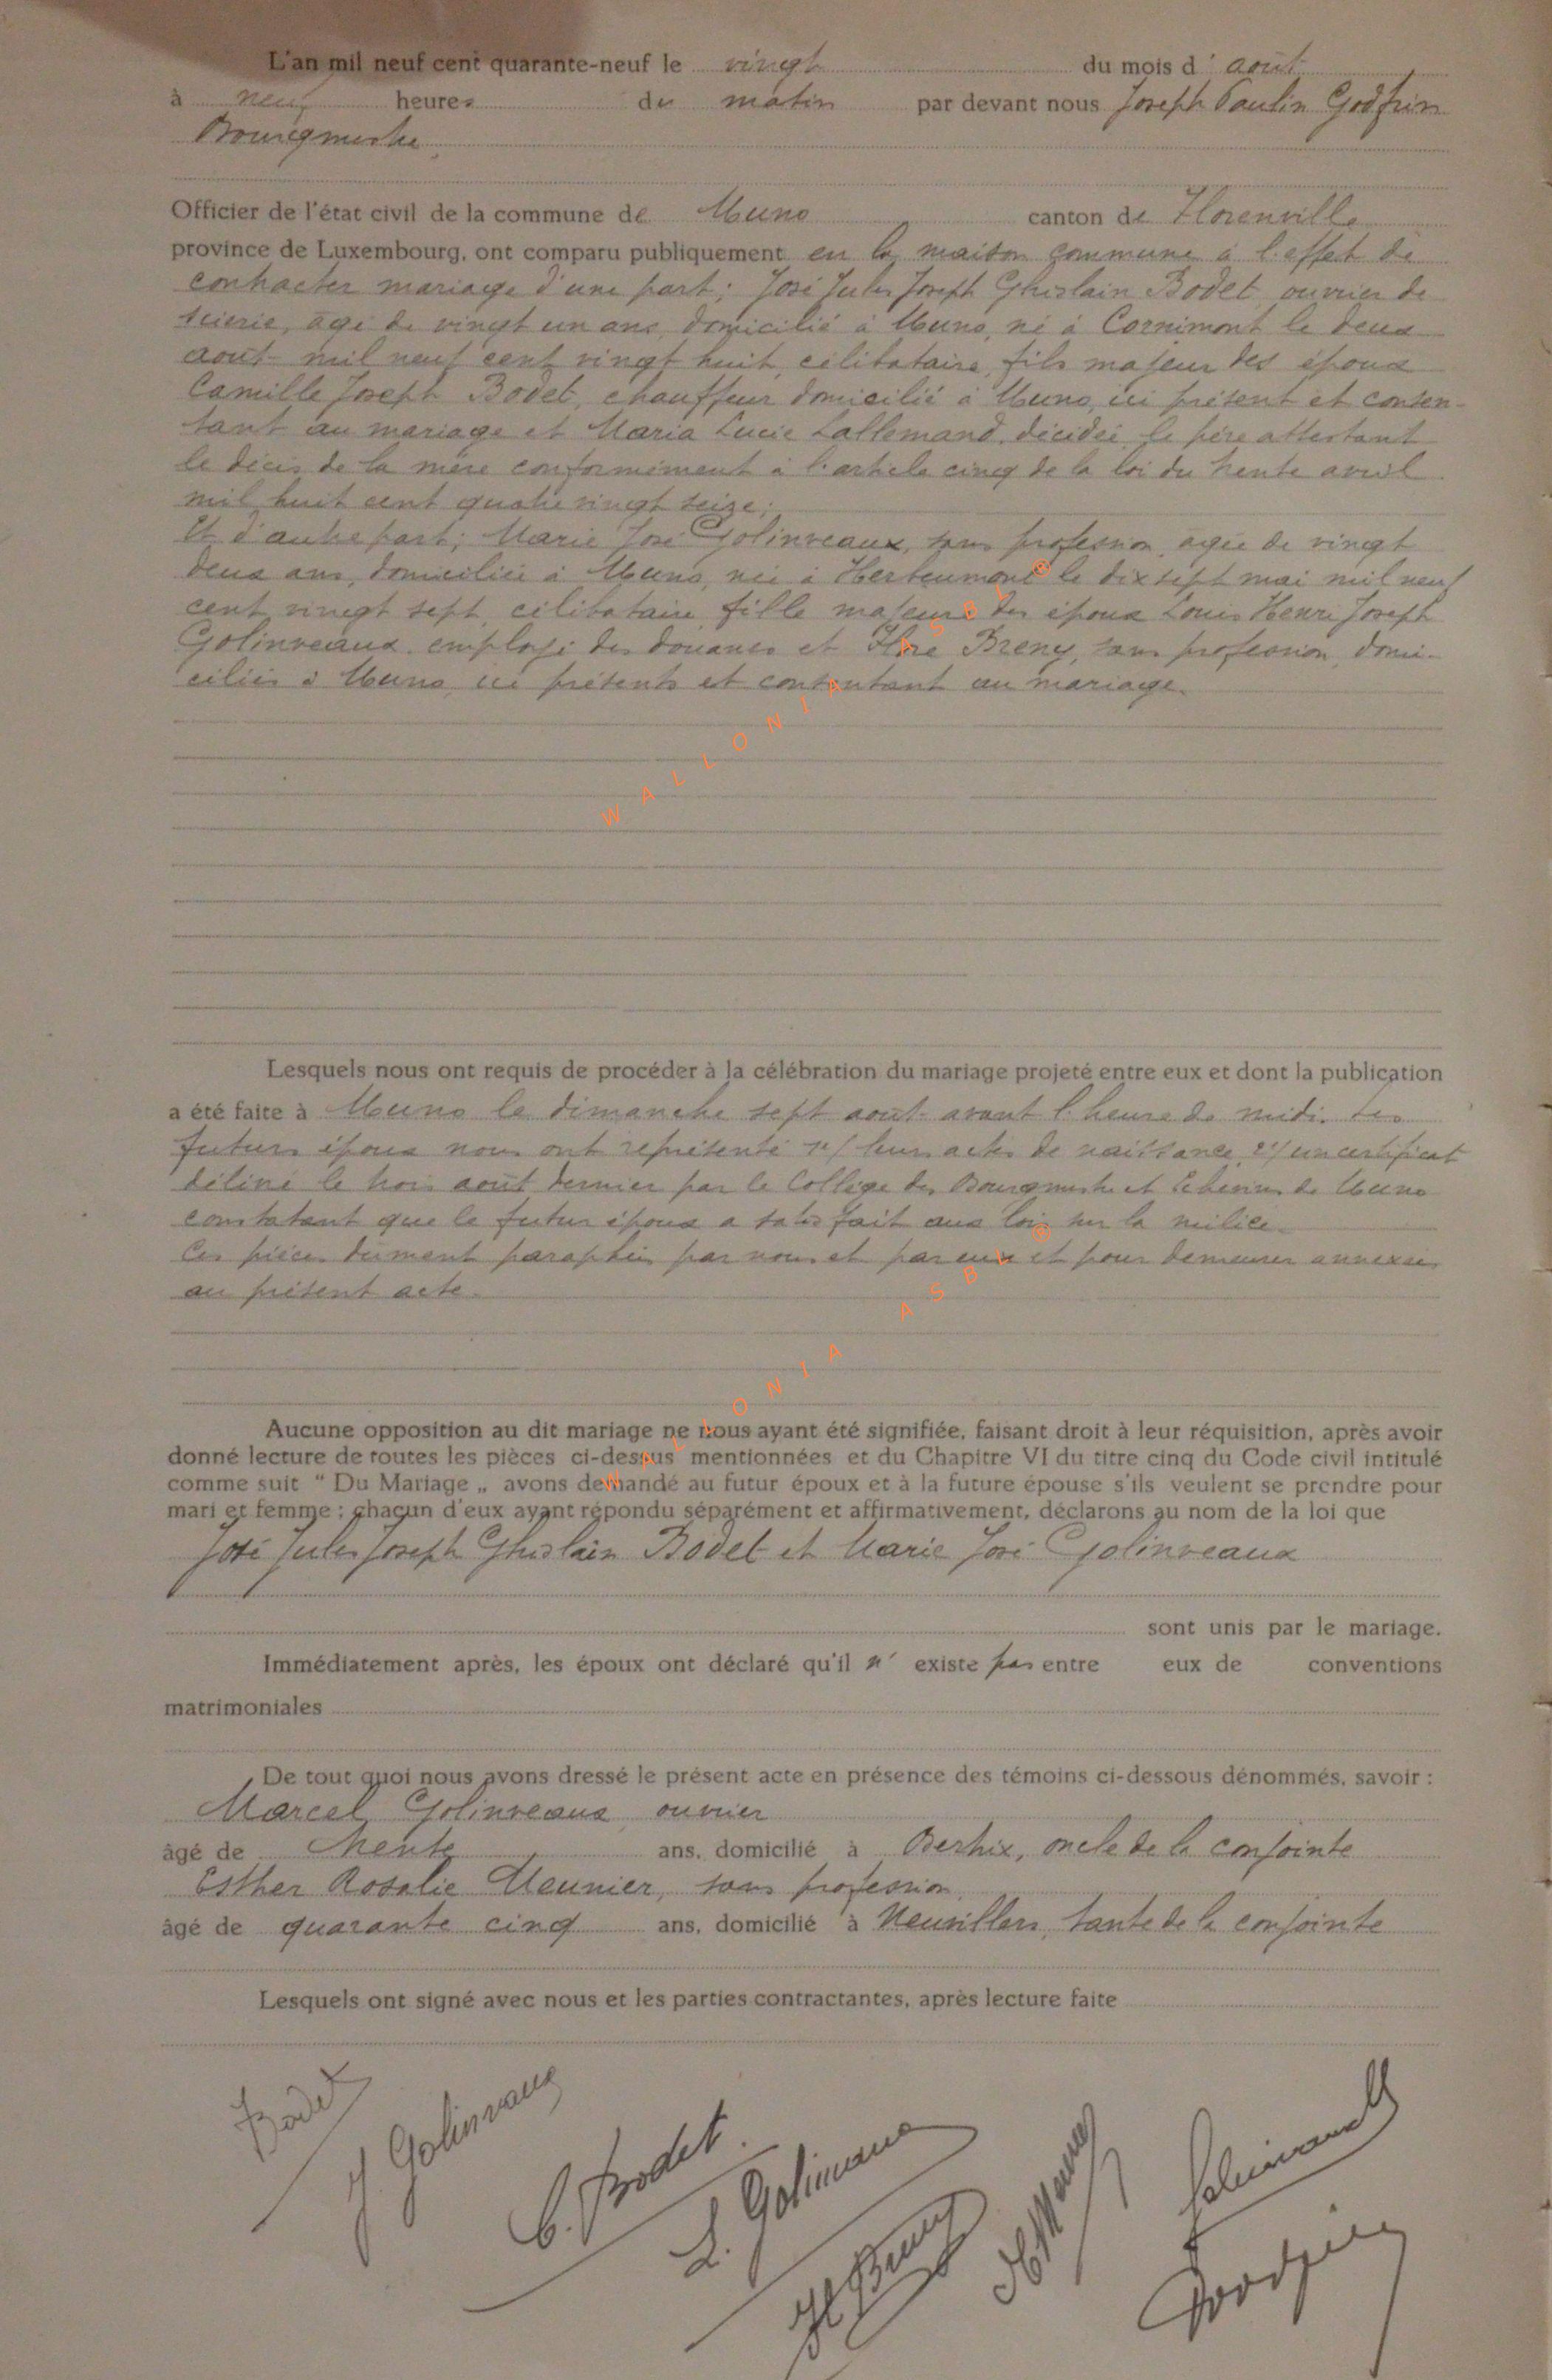 L'an mil neuf cent quarante-neuf le vingt du mois d' aout
à neuf heures du matin par devant nous Joseph Paulin Godfrin
Bourgmestre
Officier de l'état civil de la commune de Muno canton de Florenville
province de Luxembourg, ont comparu publiquement en la maison commune à l'effet de
contracter mariage d'une part; José Jules Joseph Ghislain Bodet ouvrier de
scierie, âgé de vingt un ans, domicilié à Muno, né à Cornimont le deux
aout mil neuf cent vingt huit, célibataire, fils majeur des époux
Camille Joseph Bodet, chauffeur domicilié à Muno, ici présent et consen-
tant au mariage et Maria Lucie Lallemand, décédée, le père attestant
le décès de la mère conformément à l'article cinq de la loi du trente avril
mil huit cent quatre vingt seize;
Et d'autre part; Marie José Golinveaux, sans profession, agée de vingt
deux ans, domiciliée à Muno, née à Herbeumont le dix sept mai mil neuf
cent vingt sept, célibataire, fille majeure des époux Louis Henri Joseph
Golinveaux employé des douanes et Breny, sans profession, domi-
ciliés à Muno, ici présents et consentant au mariage.
WALLONIA ASBL ®
Lesquels nous ont requis de procéder à la célébration du mariage projeté entre eux et dont la publication
a été faite à Muno le dimanche sept aout avant l'heure de midi. Les
futurs époux nous ont représenté 1°/ leurs actes de naissance, 2°/ un certificat
délivré le trois août dernier par le Collège des Bourgmestre et Echevins de Muno
constatant que le futur époux a satisfait aux lois sur la milice.
Ces pièces dument paraphées par nous et par eux et pour demeurer annexées
au présent acte.
WALLONIA ASBL ®
Aucune opposition au dit mariage ne nous ayant été signifiée, faisant droit à leur réquisition, après avoir
donné lecture de toutes les pièces ci-dessus mentionnées et du Chapitre VI du titre cinq du Code civil intitulé
comme suit " Du Mariage „ avons demandé au futur époux et à la future épouse s'ils veulent se prendre pour
mari et femme ; chacun d'eux ayant répondu séparément et affirmativement, déclarons au nom de la loi que
José Jules Joseph Ghislain Bodet et Marie José Golinveaux
sont unis par le mariage.
Immédiatement après, les époux ont déclaré qu'il n' existe pas entre eux de conventions
matrimoniales
De tout quoi nous avons dressé le présent acte en présence des témoins ci-dessous dénommés, savoir :
Marcel Golinveaux, ouvrier
âgé de trente ans, domicilié à Bertrix, oncle de la conjointe
Esther Rosalie Meunier, sans profession,
âgé de quarante cinq ans, domicilié à Neuvillers, tante de la conjointe
Lesquels ont signé avec nous et les parties contractantes, après lecture faite
Bodet
J. Golinvaux
C. Bodet.
L. Golinvaux